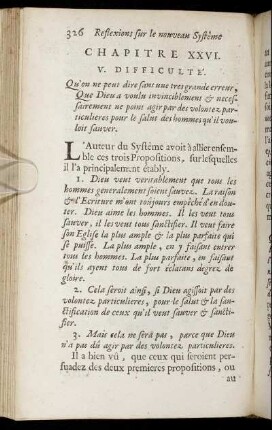 326 Reflexions sur le nouveau Systême
CHAPITRE XXVI.
V. DIFFICULTÉ.
Qu'on ne peut dire sans une tres grande erreur,
Que Dieu a voulu invinciblement & neces-
sairement ne point agir par des volontez par-
ticulieres pour le salut des hommes qu'il vou-
loit sauver.
L'Auteur du Systême avoit à allier ensem-
ble ces trois Propositions, sur lesquelles
il l'a principalement étably.
1. Dieu veut veritablement que tous les
hommes generalement soient sauvez. La raison
& l'Ecriture m'ont toûjours empêché d'en dou-
ter. Dieu aime les hommes. Il les veut tous
sauver, il les veut tous sanctifier. Il veut faire
son Eglise la plus ample & la plus parfaite qui
se puisse. La plus ample, en y faisant entrer
tous les hommes. La plus parfaite, en faisant
qu'ils ayent tous de fort éclatans degrez de
gloire.
2. Cela seroit ainsi, si Dieu agissoit par des
volontez particulieres, pour le salut & la san-
ctification de ceux qu'il veut sauver & sancti-
fier.
3. Mais cela ne sera pas, parce que Dieu
n'a pas dû agir par des volontez particulieres.
Il a bien vû, que ceux qui seroient per-
suadez des deux premieres propositions, ou
au